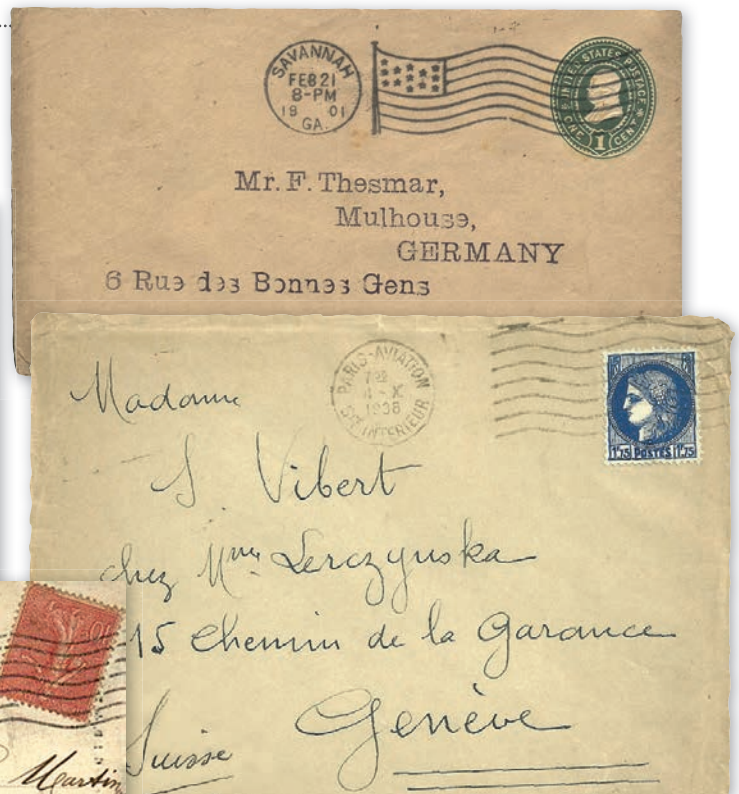 SAVANNAH
FEB 21
8-PM
19 01
GA.
UNITED STATES POSTAGE
ONE 1 CENT
Mr. F. Thesmar,
Mulhouse,
GERMANY
6 Rue des Bonnes Gens
PARIS-AVIATION
1938
INTERIEUR
RF
1F75 POSTES 1F75
Madame
S Vibert
chez Mme Lerczynska
15 Chemin de la Garance
Genève
Suisse
10
Martin